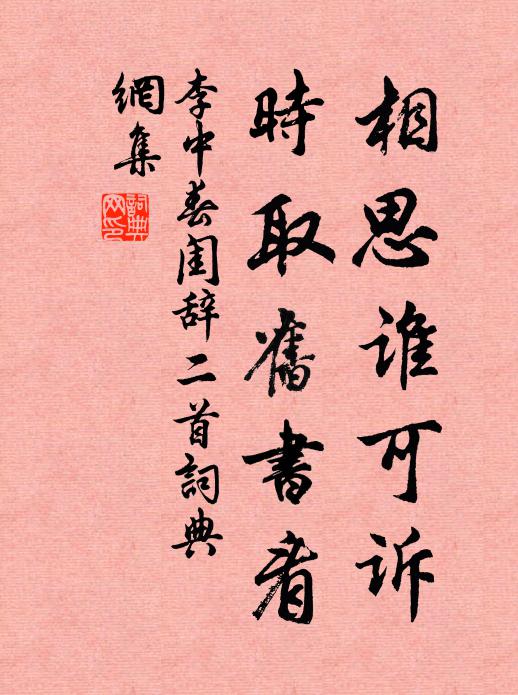 相思谁可訴
時取舊書看
李中春闺辞二首詞典
網集
詞典網印